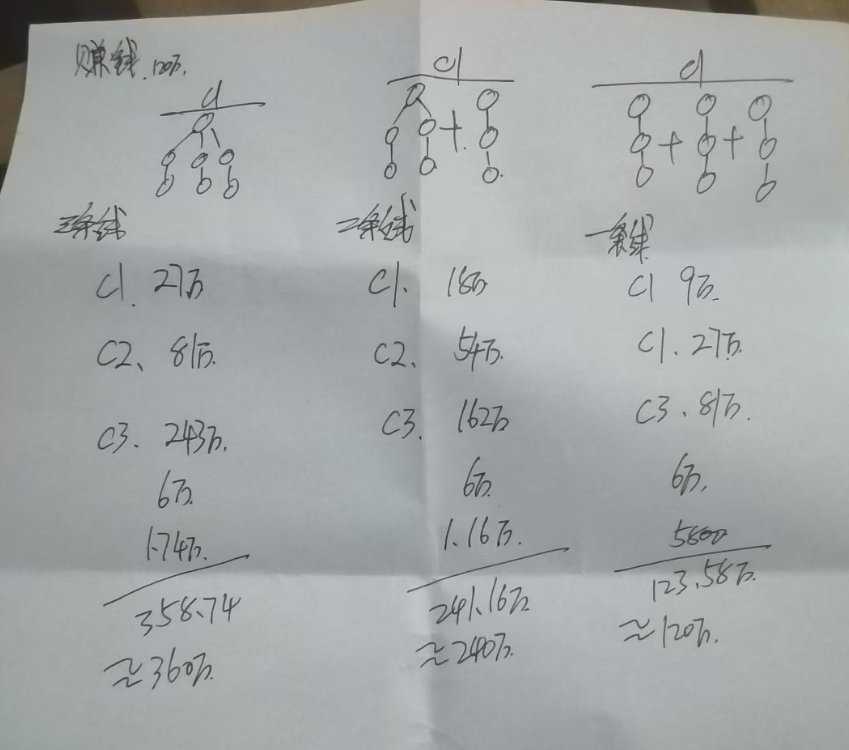 赚钱.120万.
C1
三条线
C1. 27万
C2、81万.
C3. 243万.
6万.
1.74万.
358.74
≈360万.
C1
二条线
C1. 18万
C2. 54万.
C3. 162万
6万.
1.16万.
241.16万
≈240万.
C1
一条线
C1 9万.
C1. 27万.
C3. 81万.
6万.
5800
123.58万.
≈120万.